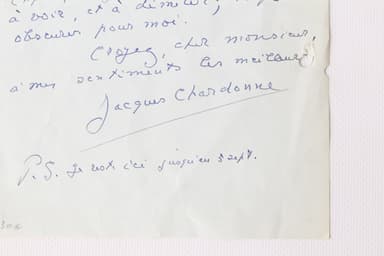 à voir, et à
obscures pour moi.
Croyez, cher monsieur,
à mes sentiments les meilleurs
Jacques Chardonne
P.S. Je reste ici jusqu'au 5 sept.